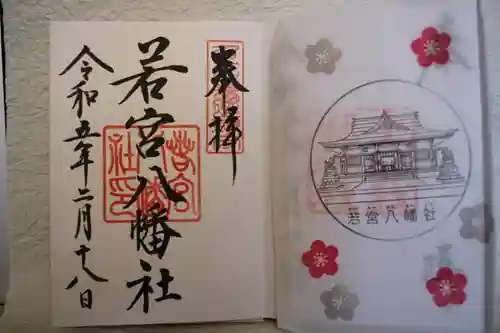 奉拝
若宮八幡社
令和五年二月十八日
若宮八幡社印
若宮八幡社